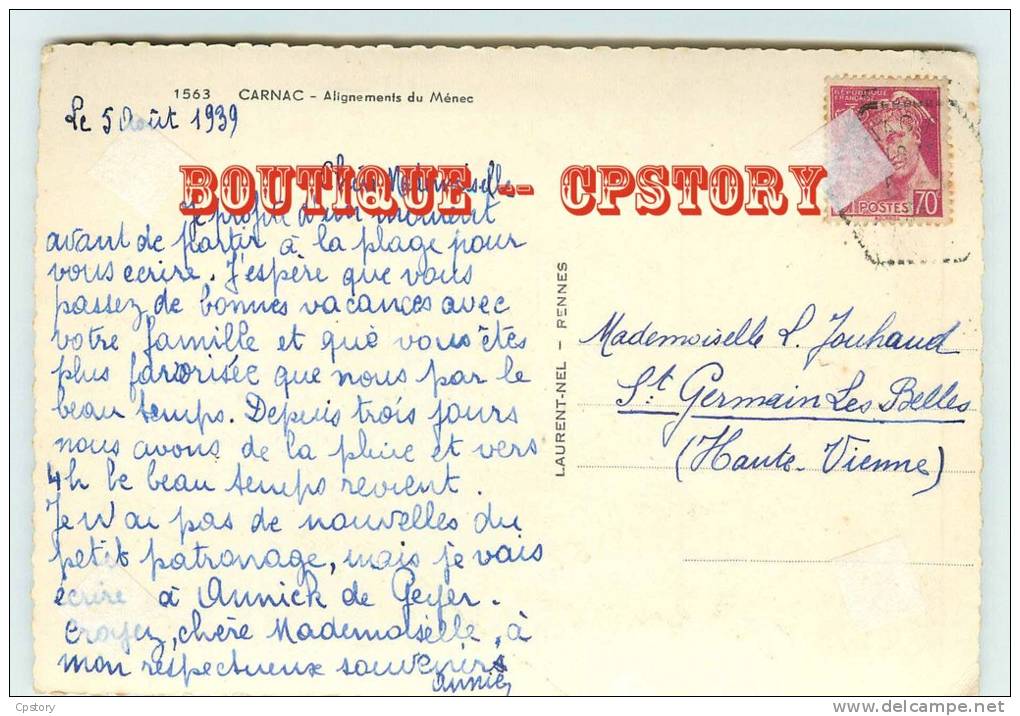 1563 CARNAC – Alignements du Ménec
Le 5 Août 1939
Chère Mademoiselle
Je profite d'un moment
avant de partir à la plage pour
vous ecrire. J'espère que vous
passez de bonnes vacances avec
votre famille et que vous êtes
plus favorisée que nous par le
beau temps. Depuis trois jours
nous avons de la pluie et vers
4h le beau temps revient.
Je n'ai pas de nouvelles du
petit patronage, mais je vais
écrire à Annick de Geyer.
Croyez, chère Mademoiselle, à
mon respectueux souvenirs
BOUTIQUE -- CPSTORY
LAURENT-NEL – RENNES
RÉPUBLIQUE
FRANÇAISE
POSTES 70
Mademoiselle L. Jouhaud
St Germain Les Belles
(Haute-Vienne)
Cpstory
www.delcampe.net